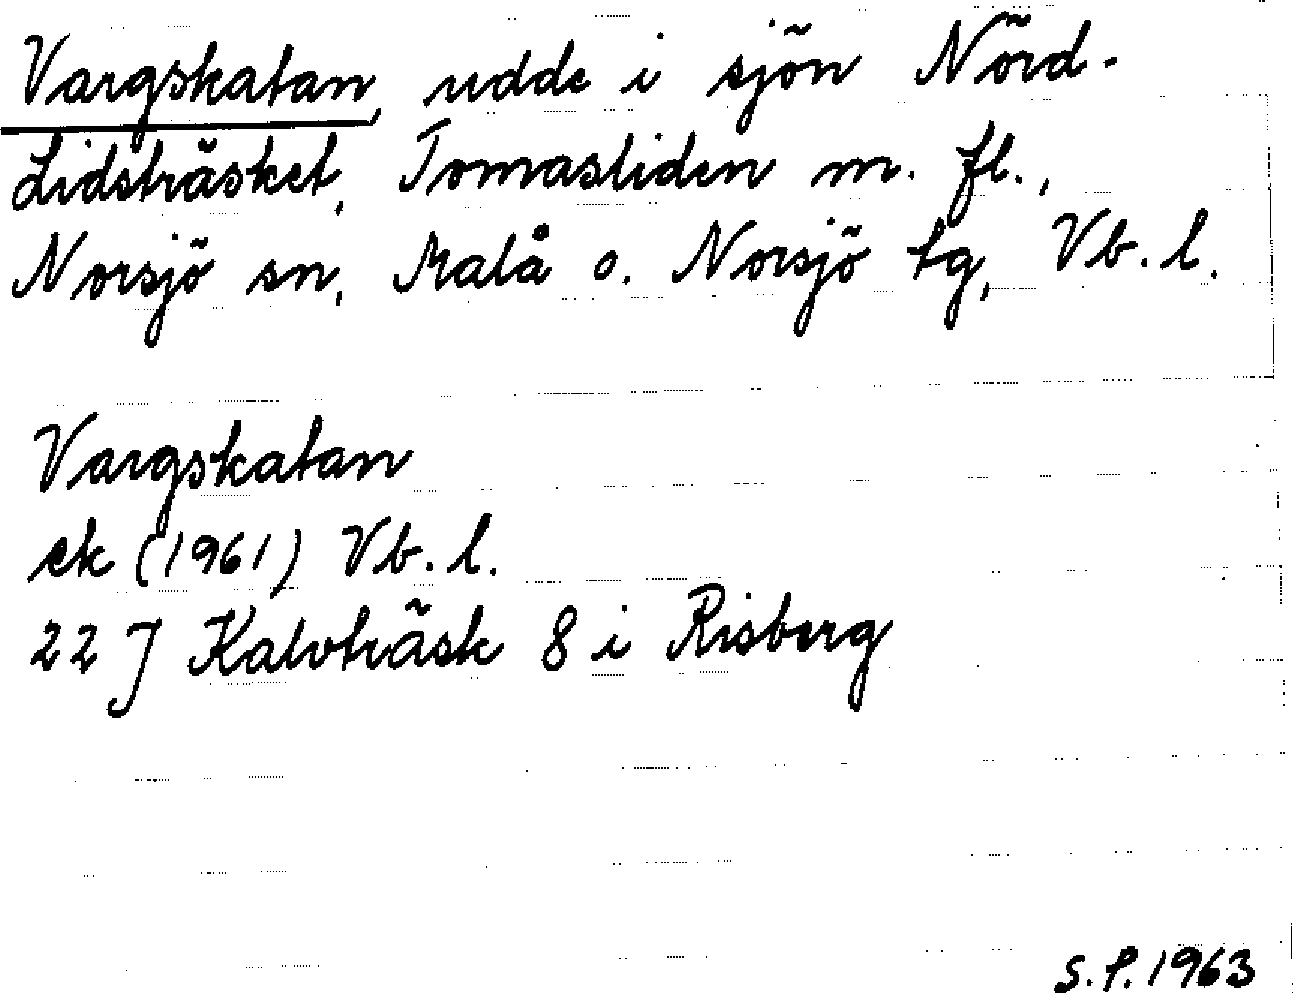 Vargskatan, udde i sjön Nörd-
Lidsträsket, Tomasliden m. fl.,
Norsjö sn, Malå o. Norsjö tg, Vb. l.
Vargskatan
ek (1961) Vb. l.
22 J Kalvträsk 8 i Risberg
S.P. 1963